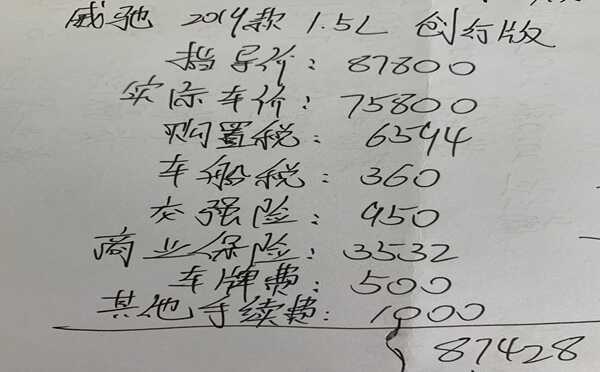 威驰 2019款 1.5L 创行版
指导价：87800
实际车价：75800
购置税：6594
车船税：360
交强险：950
商业保险：3532
车牌费：500
其他手续费：1000
87428